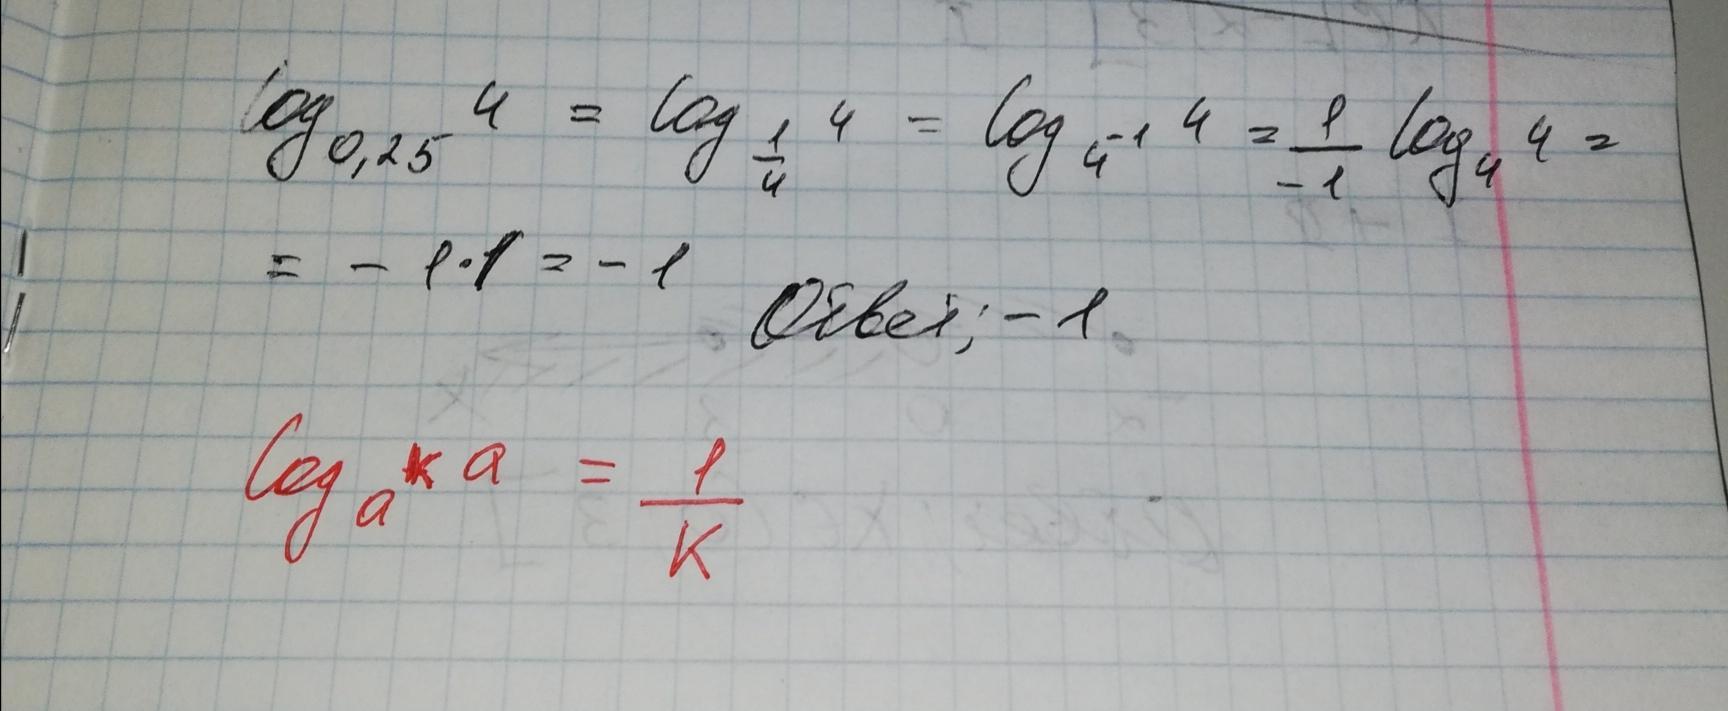 log₀,₂₅ 4 = log_{1/4} 4 = log_{4⁻¹} 4 = 1/-1 log₄ 4 =
= - 1·1 = - 1
Ответ; - 1.
log_{a^k} a = 1/K